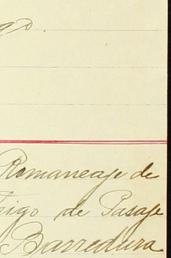 go.
Romaneaje de
trigo de Pasaje
Barredura